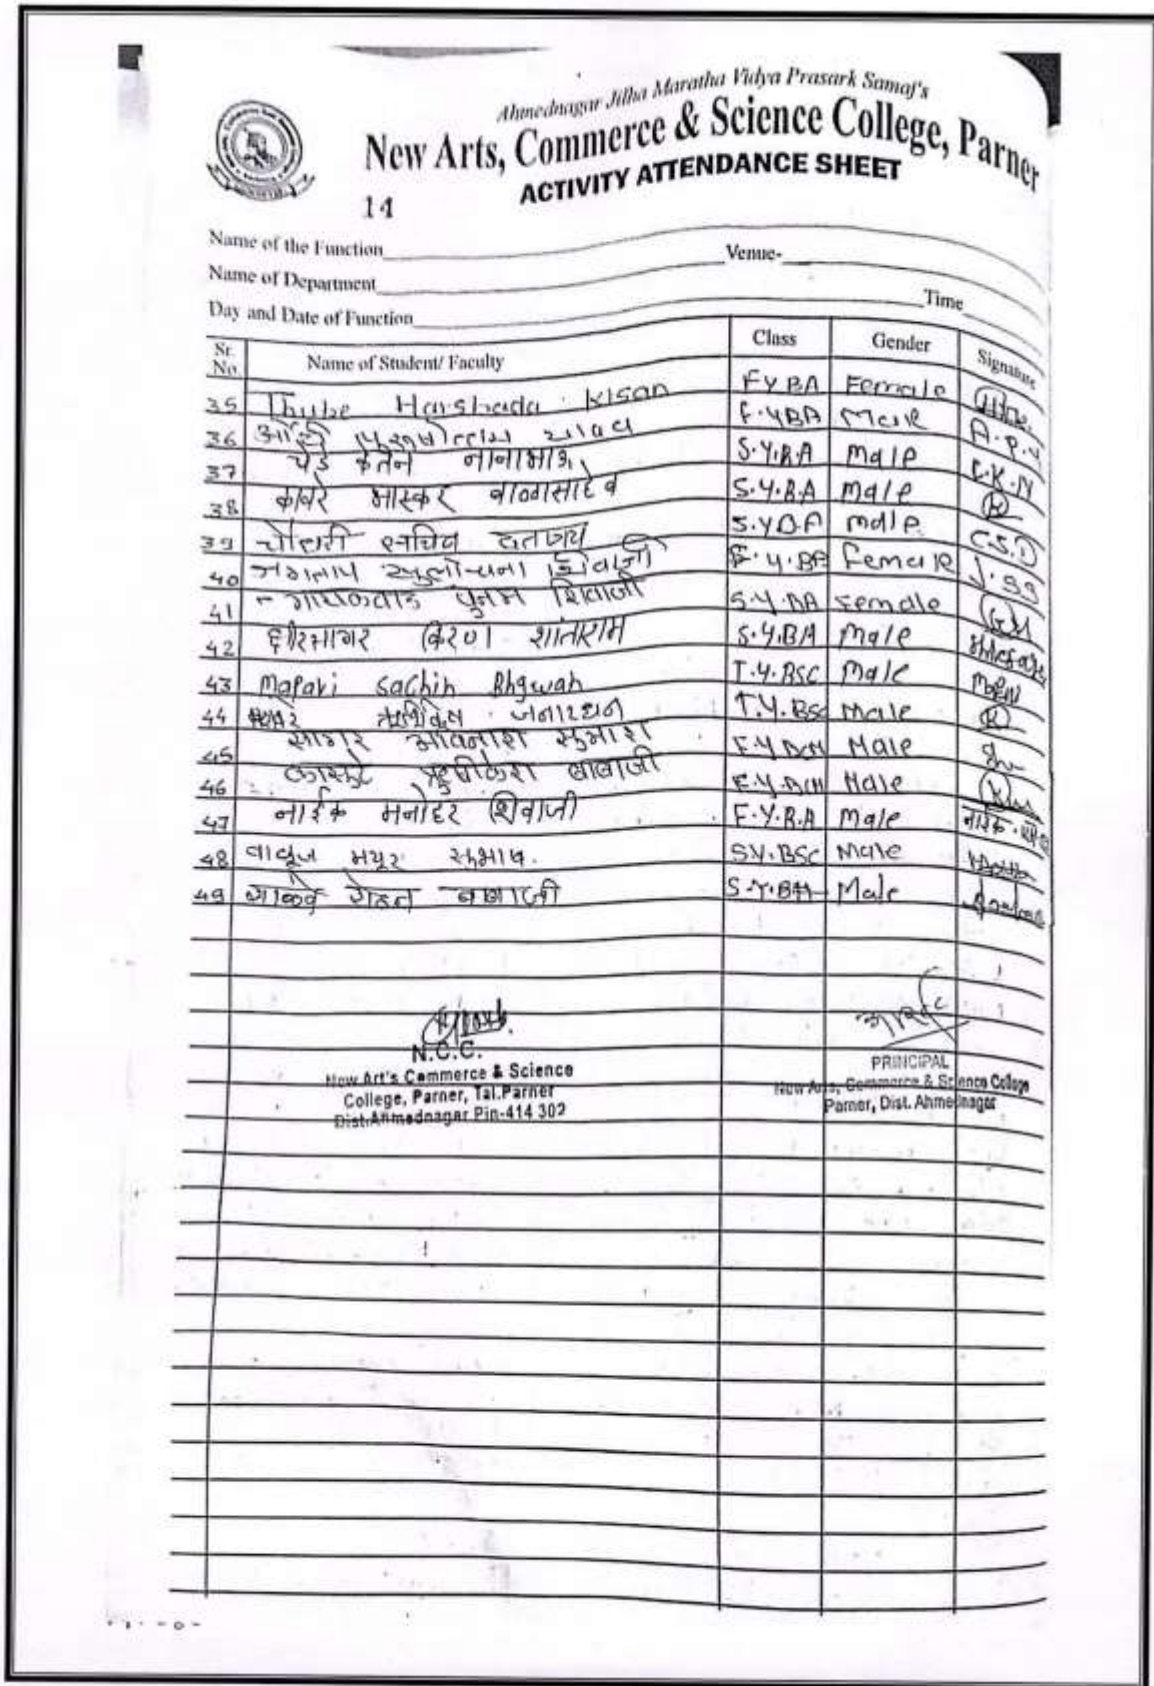 Ahmednagar Jilha Maratha Vidya Prasark Samaj's
New Arts, Commerce & Science College, Parner
ACTIVITY ATTENDANCE SHEET
14
Name of the Function
Venue-
Name of Department
Day and Date of Function
Time
Sr. No. Name of Student/ Faculty Class Gender Signature
35 Thube Harshada Kisan FYBA Female
36 F.YBA Male A.P.Y
37 नानाभाऊ S.Y.BA Male
38 कावरे भास्कर बाळासाहेब S.Y.BA Male
39 चौधरी Male C.S.D
40 जगताप सुलोचना शिवाजी Female J.SS
41 गायकवाड पुनम शिवाजी S.Y.BA Female
42 क्षीरसागर किरण शांताराम S.Y.BA Male
43 Mapari Sachin Bhgwan T.Y.BSC Male
44 T.Y.BSC Male
45 Male
46 बाबाजी Male
47 नाईक मनोहर शिवाजी F.Y.B.A Male
48 वाळूंज मयूर सुभाष. S.Y.BSC Male
49 Male
N.C.C.
New Art's Commerce & Science
College, Parner, Tal.Parner
Dist.Ahmednagar Pin-414 302
PRINCIPAL
New Arts, Commerce & Science College
Parner, Dist. Ahmednagar